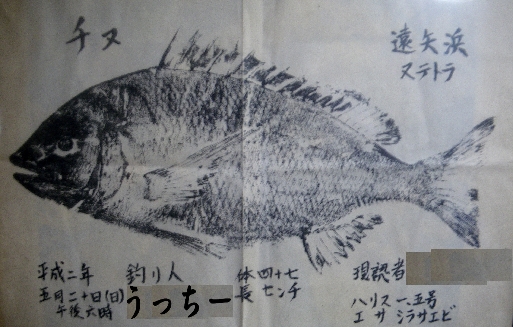 チヌ
遠矢浜
ステトラ
平成二年
五月二十日(日)
午後六時
釣り人
うっちー
体長
四十七センチ
現認者
ハリス 一.五号
エサ シラサエビ